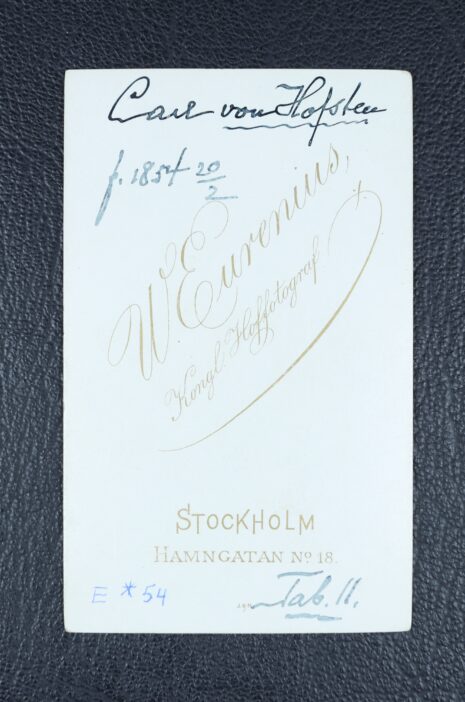 Carl von Hofsten
f. 1854 20/2
W. Eurenius,
Kongl. Hoffotograf.
STOCKHOLM
HAMNGATAN No 18.
E * 54
Tab. 11.